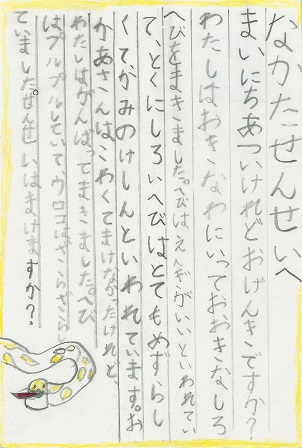 なかたせんせいへ
まいにちあついけれどおげんきですか？
わたしはおきなわにいっておおきなしろ
へびをまきました。へびはえんぎがいいといわれてい
て、とくにしろいへびはとてもめずらし
くてかみのけしんといわれています。お
かあさんはこわくてまけなかったけれど、
わたしはがんばってまきました。へび
はプルプルしていて、ウロコはざらざら
ていました。せんせいはまけますか？